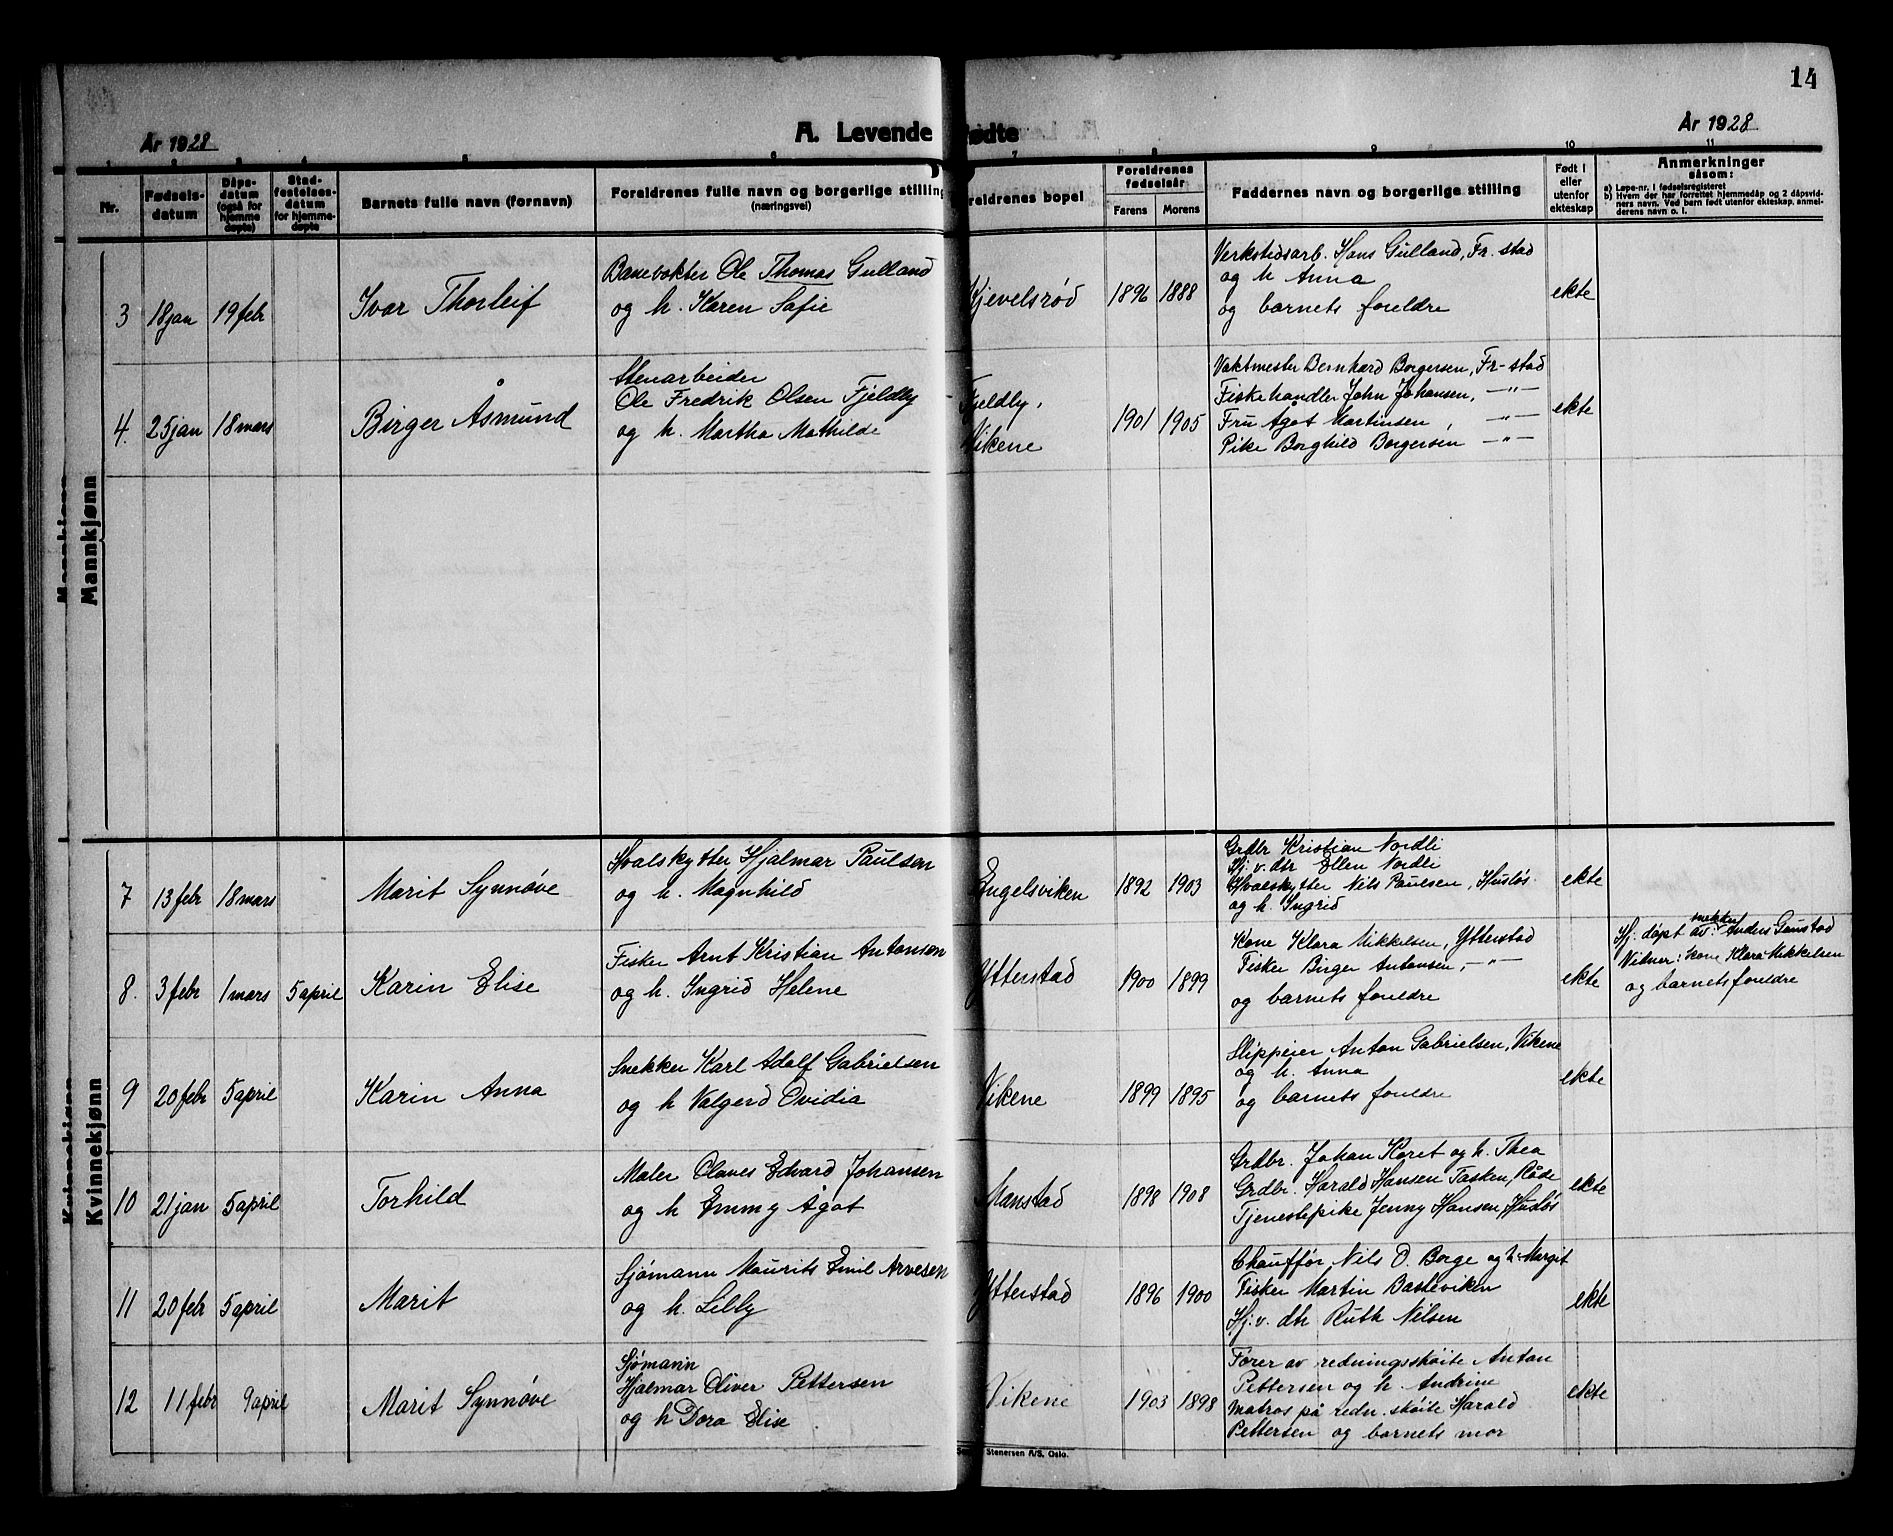 14
År 1928
A. Levende fødte
År 1928
1 2 3 4 5 6 7 8 9 10 11
Nr.
Fødselsdatum
Dåpsdatum (også for hjemmedøpte)
Stadfestelsesdatum for hjemmedøpte
Barnets fulle navn (fornavn)
Foreldrenes fulle navn og borgerlige stilling (næringsvei)
reldrenes bopel
Foreldrenes fødselsår
Farens
Morens
Faddernes navn og borgerlige stilling
Født i eller utenfor ekteskap
Anmerkninger såsom:
a) Løpe-nr. i fødselsregisteret
b) Hvem der har forrettet hjemmedåp og 2 dåpsvidners navn. Ved barn født utenfor ekteskap, anmelderens navn o. l.
Mannkjønn
3 18 jan 19 febr Ivar Thorleif
Banevokter Ole Thomas Gulland
og h. Karen Sofie
Kjevelsrød 1896 1888
Verkstedsarb. Hans Gulland, Fr. stad
og h Anna
og barnets foreldre
ekte
4. 25 jan 18 mars Birger Åsmund
Stenarbeider
Ole Fredrik Olsen Fjeldby
og h. Martha Mathilde
Fjeldby,
Vikene
1901 1905
Vaktmester Bernhard Borgersen, Fr-stad
Fiskehandler John Johansen, —"—
Fru Agot Martinsen, —"—
Pike Borghild Borgersen —"—
ekte
Kvinnekjønn
7 13 febr 18 mars Marit Synnøve
Hvalskytter Hjalmar Paulsen
og h. Magnhild
Engelsviken 1892 1903
Grdbr Kristian Nordli
Hj.v. dtr Ellen Nordli
Hvalskytter Nils Paulsen, Husløs
og h. Ingrid
ekte
8. 3 febr 1 mars 5 april Karin Elise
Fisker Arnt Kristian Antonsen
og h. Ingrid Helene
Ytterstad 1900 1899
Kone Klara Mikkelsen, Ytterstad
Fisker Birger Antonsen, —"—
og barnets foreldre
ekte
Hj. døpt av snekker Anders Gaustad
Vitner: Kone Klara Mikkelsen
og barnets foreldre
9 20 febr 5 april Karin Anna
Snekker Karl Adolf Gabrielsen
og h Valgerd Ovidia
Vikene 1899 1895
Slippeier Anton Gabrielsen, Vikene
og h. Anna
og barnets foreldre
ekte
10 21 jan 5 april Torhild
Maler Olaves Edvard Johansen
og h Emmy Ågot
Manstad 1898 1908
Grdbr. Johan Koret og h. Thea
Grdbr. Harald Hansen Tasken, Råde
Tjenestepike Jenny Hansen, Husløs
ekte
11 20 febr 5 april Marit
Sjømann Maurits Emil Arvesen
og h. Lilly
Ytterstad 1896 1900
Chauffør Nils O. Borge og h. Margit
Fisker Martin Basteviken
Hj.v. dtr Ruth Nilsen
ekte
12 11 febr 9 april Marit Synnøve
Sjømann
Hjalmar Oliver Pettersen
og h Dora Elise
Vikene 1903 1898
Fører av redningsskøite Anton
Pettersen og h. Andrine
matros på redn. skøite Harald
Pettersen og barnets mor
ekte
Stenersen A/S, Oslo.